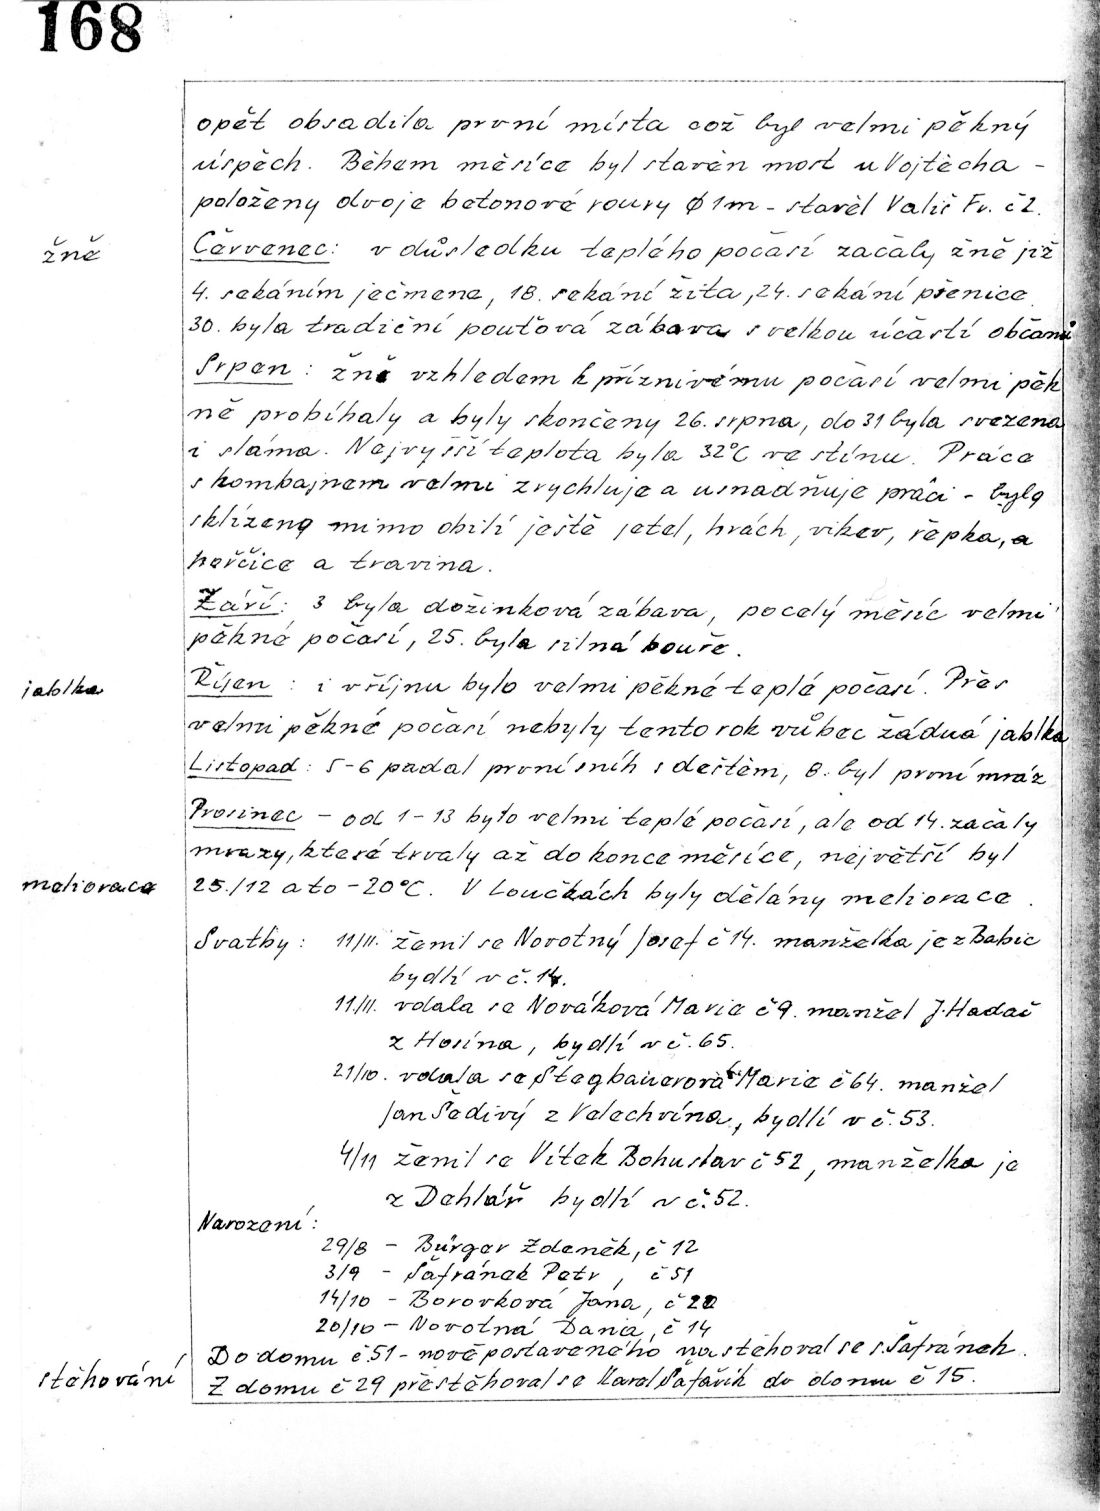 168
opět obsadila první místa což byl velmi pěkný
úspěch. Během měsíce byl stavěn most u Vojtěcha -
položeny dvoje betonové roury Ø 1m - stavěl Valič Fr. č 2.
žně
Červenec: v důsledku teplého počasí začaly žně již
4. sekáním ječmene, 18. sekání žita, 24. sekání pšenice
30. byla tradiční pouťová zábava s velkou účastí občanů
Srpen: žně vzhledem k příznivému počasí velmi pěk
ně probíhaly a byly skončeny 26. srpna, do 31 byla svezena
i sláma. Nejvyšší teplota byla 32°C ve stínu. Práce
s kombajnem velmi zrychluje a usnadňuje práci - bylo
sklizeno mimo obilí ještě jetel, hrách, vikev, řepka, a
hořčice a travina.
Září: 3 byla dožinková zábava, po celý měsíc velmi
pěkné počasí, 25. byla silná bouře.
jablka
Říjen: i v říjnu bylo velmi pěkné teplé počasí. Přes
velmi pěkné počasí nebyly tento rok vůbec žádná jablka
Listopad: 5-6 padal první sníh s deštěm, 8. byl první mráz
Prosinec - od 1-13 bylo velmi teplé počasí, ale od 14. začaly
mrazy, které trvaly až do konce měsíce, největší byl
meliorace
25./12 a to -20°C. V Loučkách byly dělány meliorace.
Svatby: 11/II. ženil se Novotný Josef č 14. manželka je z Babic
bydlí v č. 14.
11/II. vdala se Nováková Marie č 9. manžel J. Hadač
z Hosína, bydlí v č. 65.
21/10. vdala se Štegbauerová Marie č 64. manžel
Jan Šedivý z Velechvína, bydlí v č. 53.
4/11 ženil se Vítek Bohuslav č 52, manželka je
z Dehlář bydlí v č. 52.
Narození:
29/8 - Bürger Zdeněk, č 12
3/9 - Šafránek Petr, č 51
14/10 - Borovková Jana, č
20/10 - Novotná Dana, č 14
Do domu č 51 - nově postaveného nastěhoval se s. Šafránek.
stěhování
Z domu č 29 přestěhoval se Karel Šafařík do domu č 15.